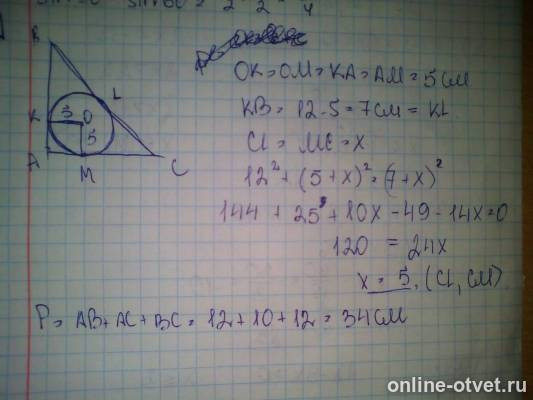 B
K 5 O L
5
A M C
OK = OM = KA = AM = 5 см
KB = 12 - 5 = 7 см = KL
CL = MC = X
12² + (5 + x)² = (7 + x)²
144 + 25 + 10x - 49 - 14x = 0
120 = 24x
x = 5, (CL, CM)
P = AB + AC + BC = 12 + 10 + 12 = 34 см
online-otvet.ru